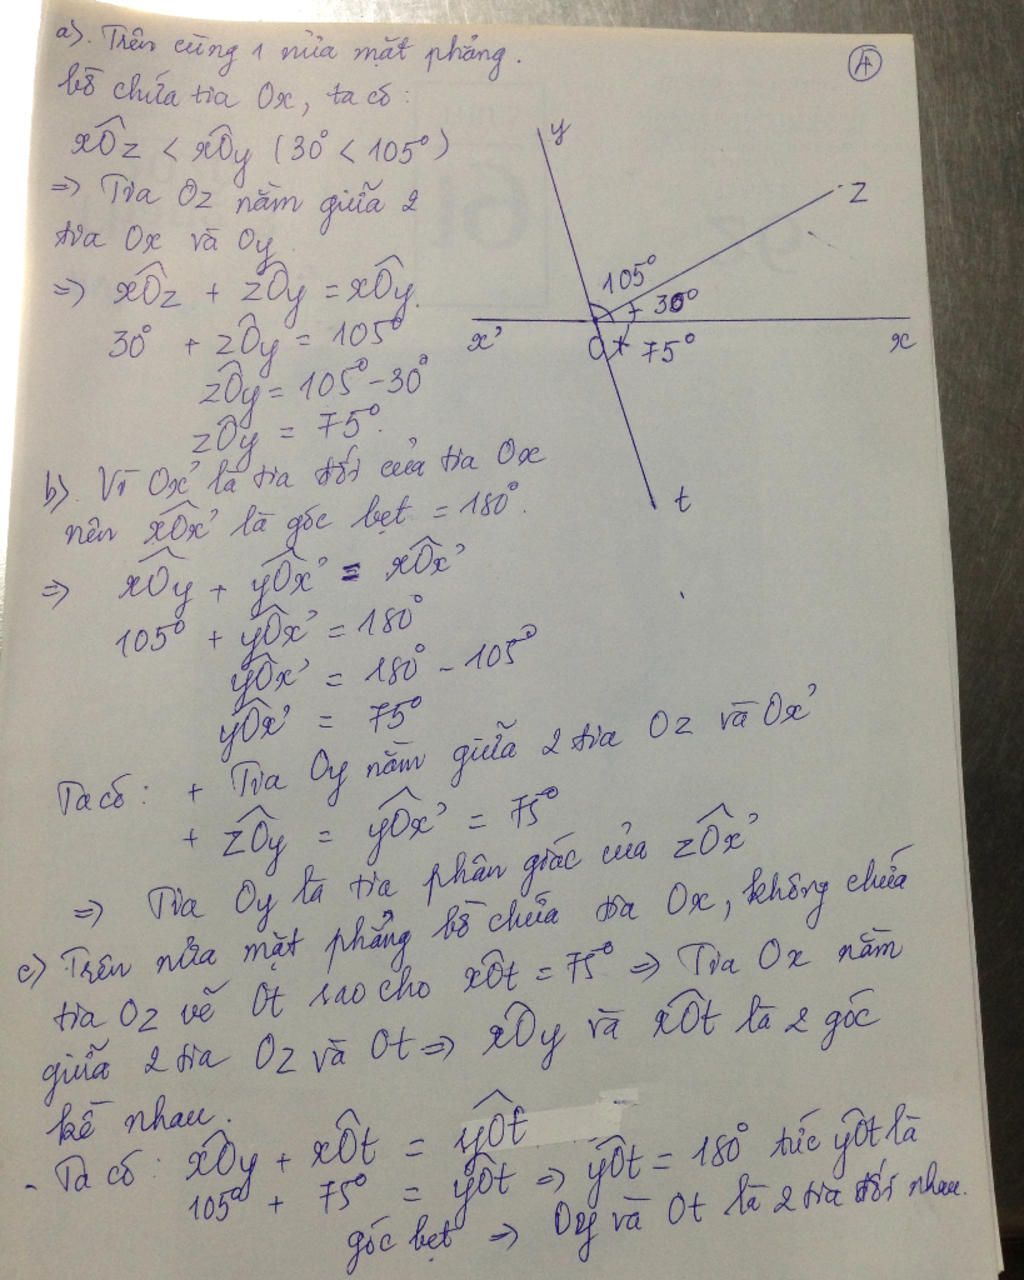 a). Trên cùng 1 nửa mặt phẳng.
bờ chứa tia Ox, ta có:
xÔz < xÔy (30° < 105°)
=> Tia Oz nằm giữa 2
tia Ox và Oy
=> xÔz + zÔy = xÔy.
30° + zÔy = 105°
zÔy = 105° - 30°
zÔy = 75°.
b). Vì Ox' là tia đối của tia Ox
nên xÔx' là góc bẹt = 180°.
=> xÔy + yÔx' = xÔx'
105° + yÔx' = 180°
yÔx' = 180° - 105°
yÔx' = 75°
Ta có: + Tia Oy nằm giữa 2 tia Oz và Ox'
+ zÔy = yÔx' = 75°
=> Tia Oy là tia phân giác của zÔx'
c) Trên nửa mặt phẳng bờ chứa tia Ox, không chứa
tia Oz vẽ Ot sao cho xÔt = 75° => Tia Ox nằm
giữa 2 tia Oz và Ot => xÔy và xÔt là 2 góc
kề nhau.
- Ta có: xÔy + xÔt = yÔt
105° + 75° = yÔt => yÔt = 180° tức yÔt là
góc bẹt => Oy và Ot là 2 tia đối nhau.
4
y
z
105°
30°
x'
O
75°
x
t